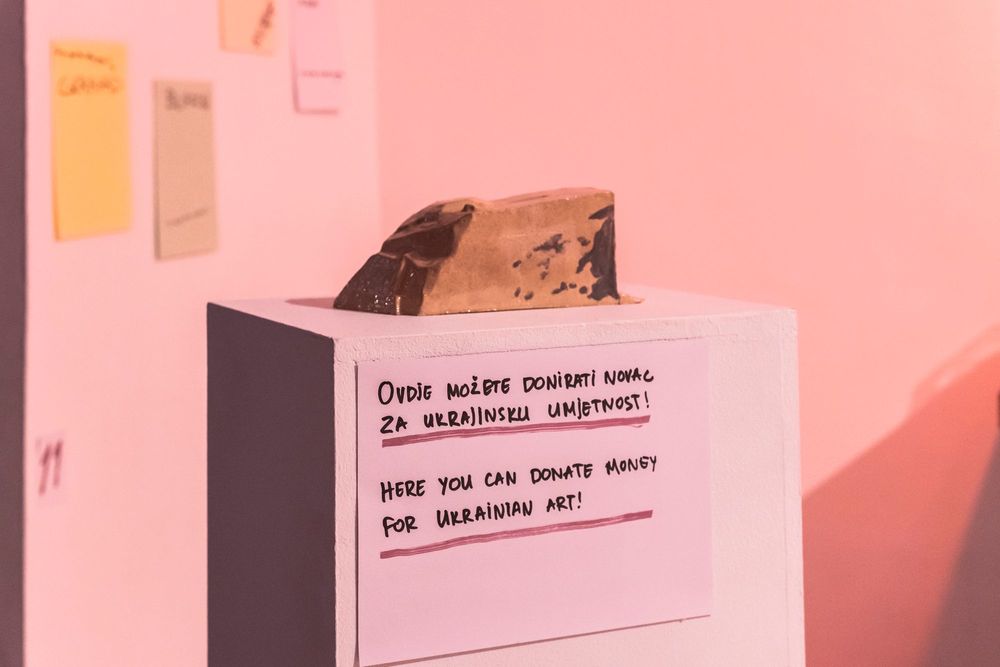 OVDJE MOŽETE DONIRATI NOVAC
ZA UKRAJINSKU UMJETNOST!
HERE YOU CAN DONATE MONEY
FOR UKRAINIAN ART!